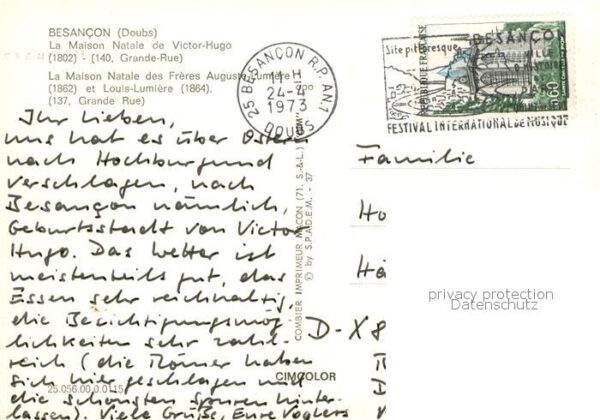 BESANÇON (Doubs)
La Maison Natale de Victor-Hugo
(1802) - (140, Grande-Rue)
La Maison Natale des Frères Auguste Lumière
(1862) et Louis-Lumière (1864).
(137, Grande Rue)
25 BESANÇON R.P. AN.1
11 H
24-4
1973
DOUBS
Site pittoresque
BESANÇON
VILLE
FESTIVAL INTERNATIONAL DE MUSIQUE
REPUBLIQUE FRANÇAISE
0,60
Ihr Lieben,
uns hat es über Ostern
nach Hochburgund
verschlagen, nach
Besançon nämlich,
Geburtsstadt von Victor
Hugo. Das Wetter ist
meistenteils gut, das
Essen sehr reichhaltig,
die Besichtigungsmög-
lichkeiten sehr zahl-
reich (die Römer haben
sich hier geschlagen und
die schönsten Spuren hinter-
lassen). Viele Grüße, Eure Voglers
COMBIER IMPRIMEUR MACON (71. S.-&-L.) "CIM"
© by S.P.A.D.E.M. - 37
CIMCOLOR
25.056.00.0.0115
Familie
Ho
Hä
D-X8
privacy protection
Datenschutz